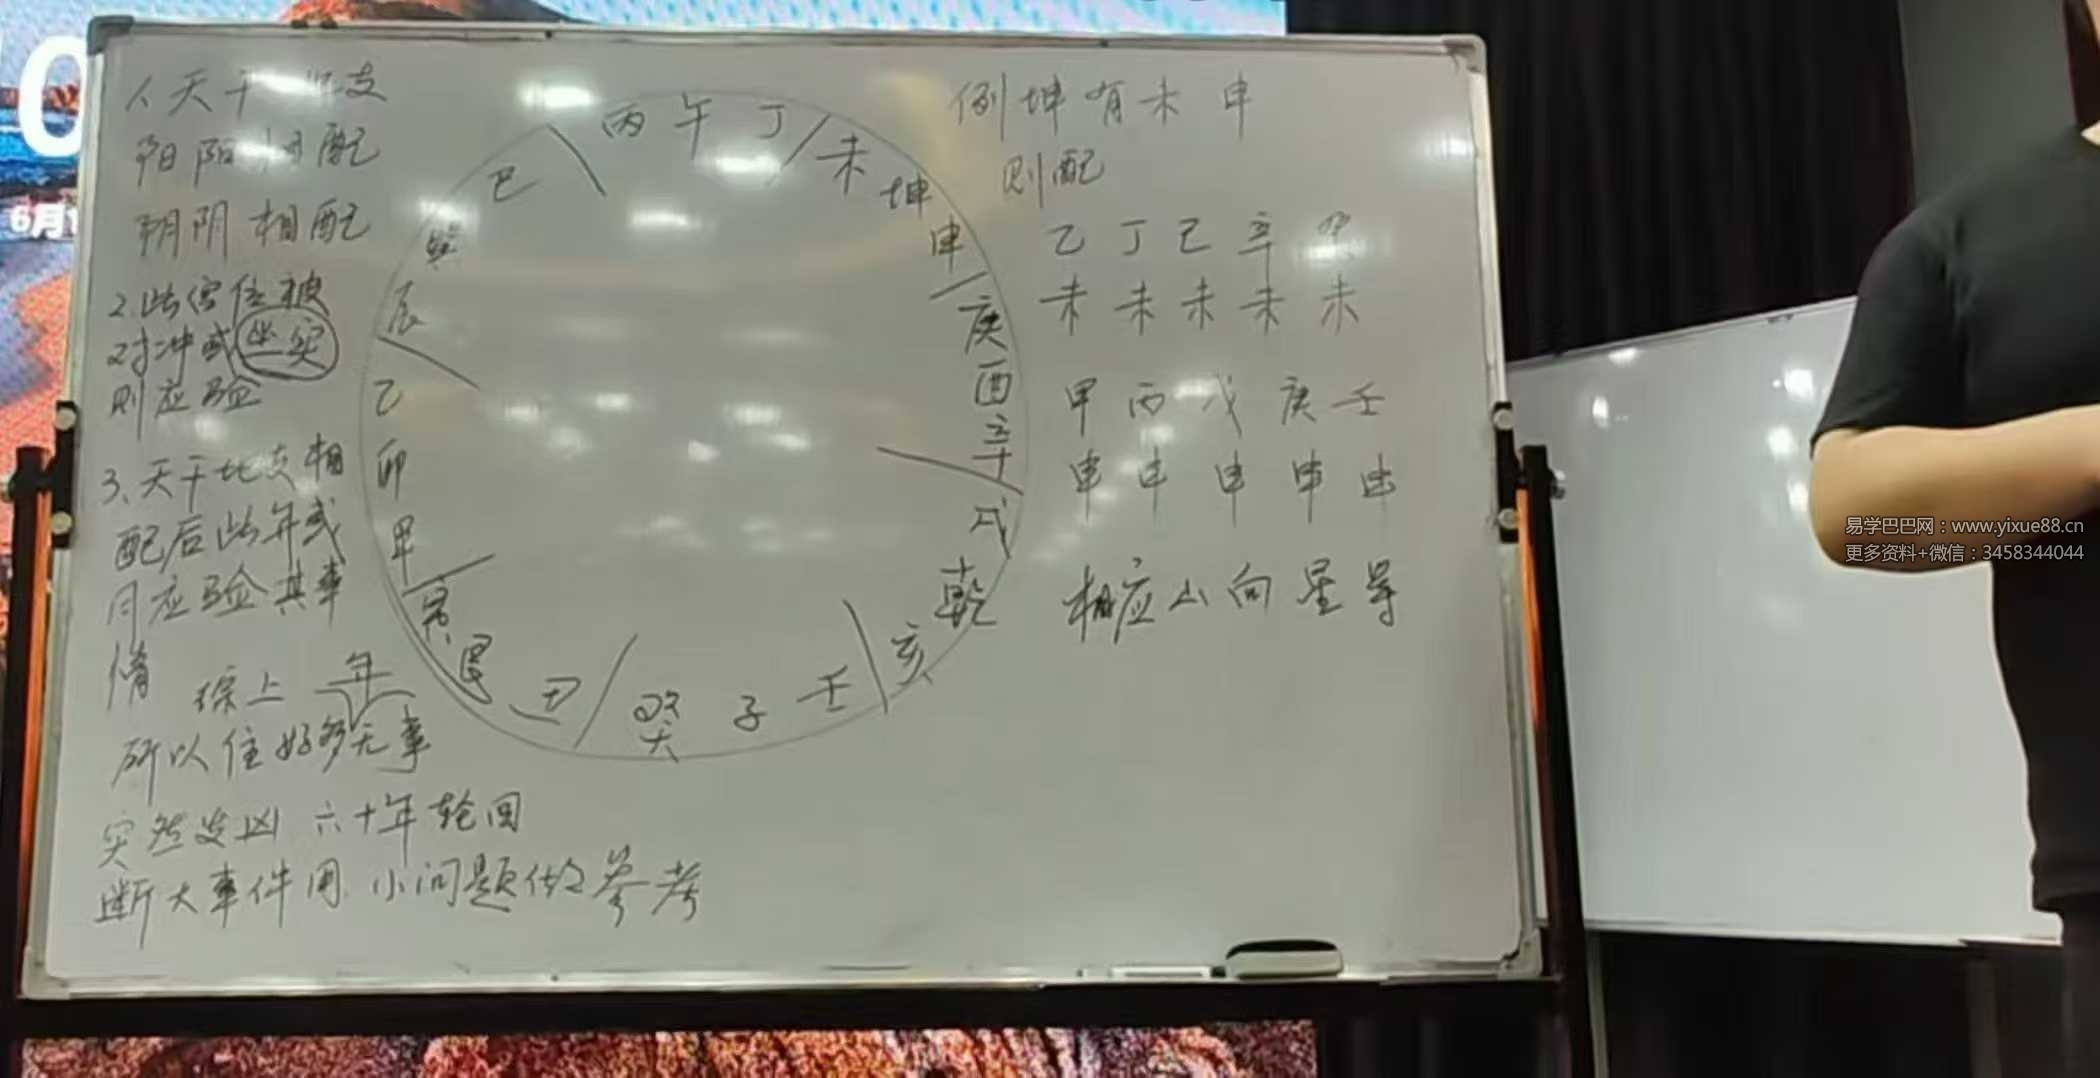 1、天干地支
阳阳相配
阴阴相配
2.此宫位被
对冲或坐实
则应验
3、天干地支相
配后此年或
月应验其事
情
综上
年
所以住好多无事
突然发凶 六十年轮回
断大事件用.小问题做参考
丙 午 丁
未 坤 申
庚 酉 辛
戌 乾 亥
壬 子 癸
丑 艮 寅
甲 卯 乙
辰 巽 巳
例坤有未申
则配
乙 丁 己 辛 癸
未 未 未 未 未
甲 丙 戊 庚 壬
申 申 申 申 申
相应山向星号
易学巴巴网：www.yixue88.cn
更多资料+微信：3458344044
0
6月1